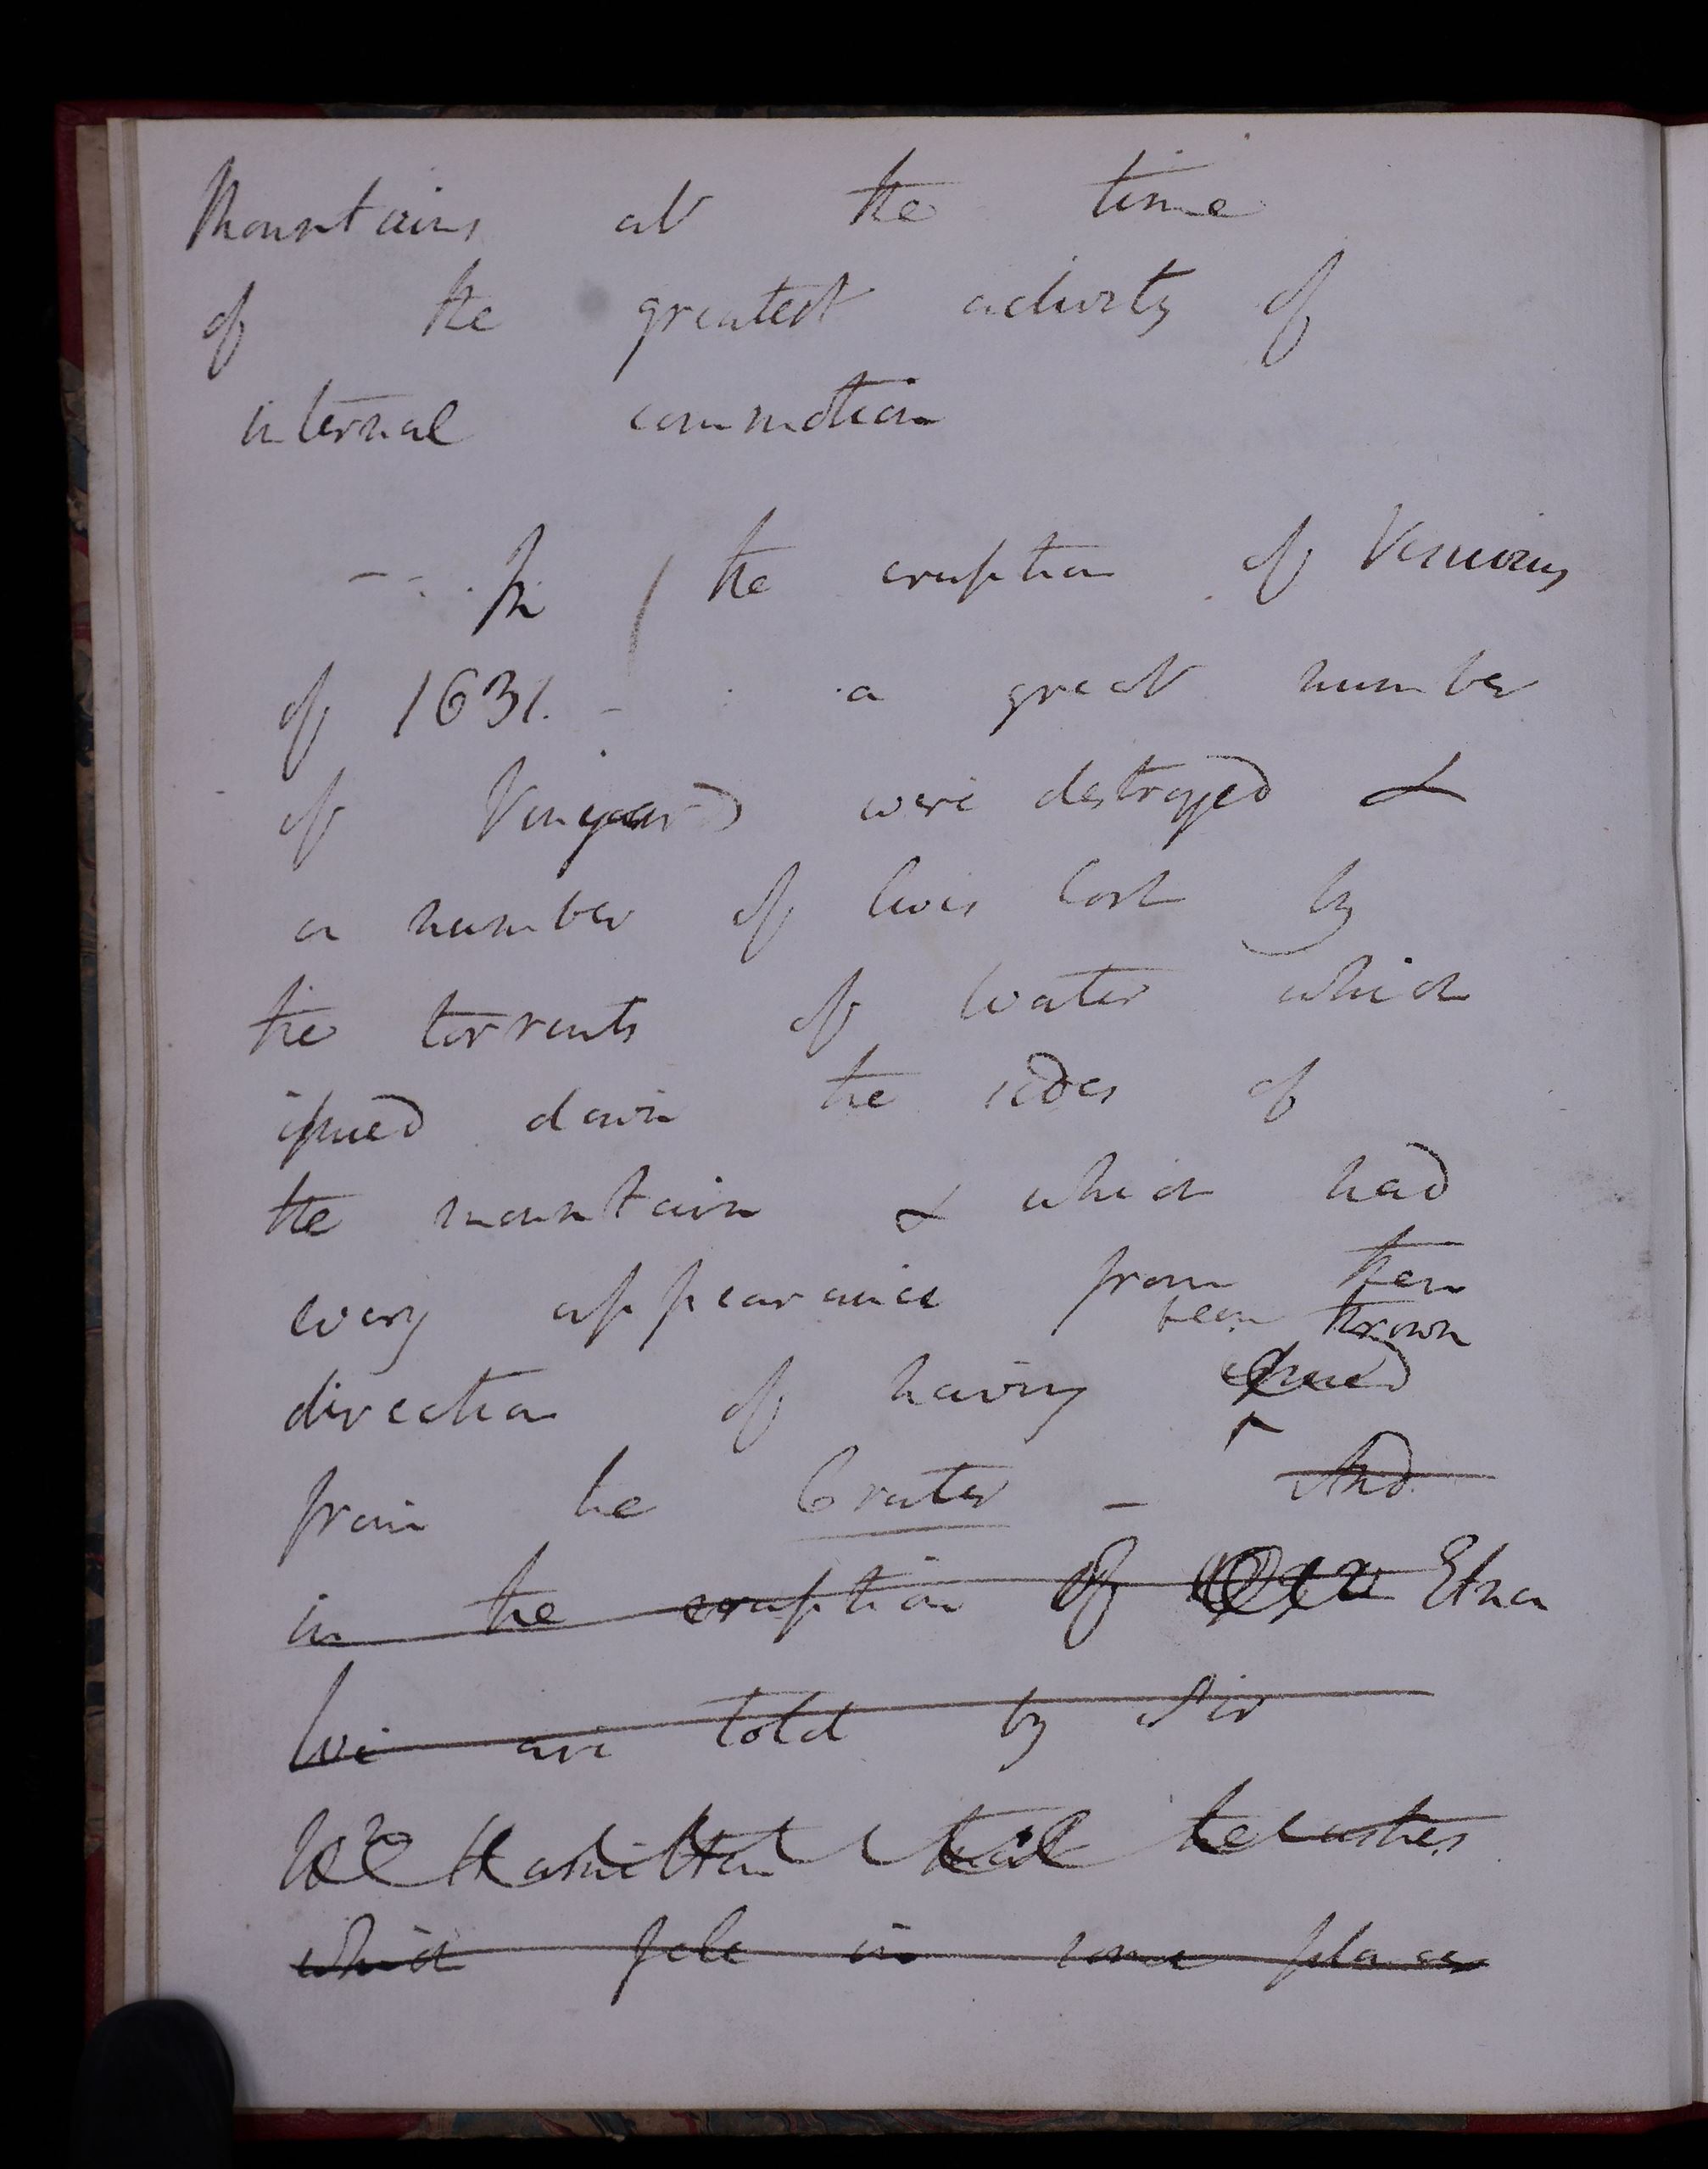 Mountains at the time
of the greatest activity of
internal commotion
- - . In / the eruption of Vesuvius
of 1631. - a great number
of Vineyards were destroyed &
a number of lives lost by
the torrents of water which
issued down the sides of
the mountain & which had
every appearance from their
been thrown
direction of having issued
from the Crater - And
in the eruption of Etna
We are told by Sir
Wm Hamilton that the ashes
which fell in some places